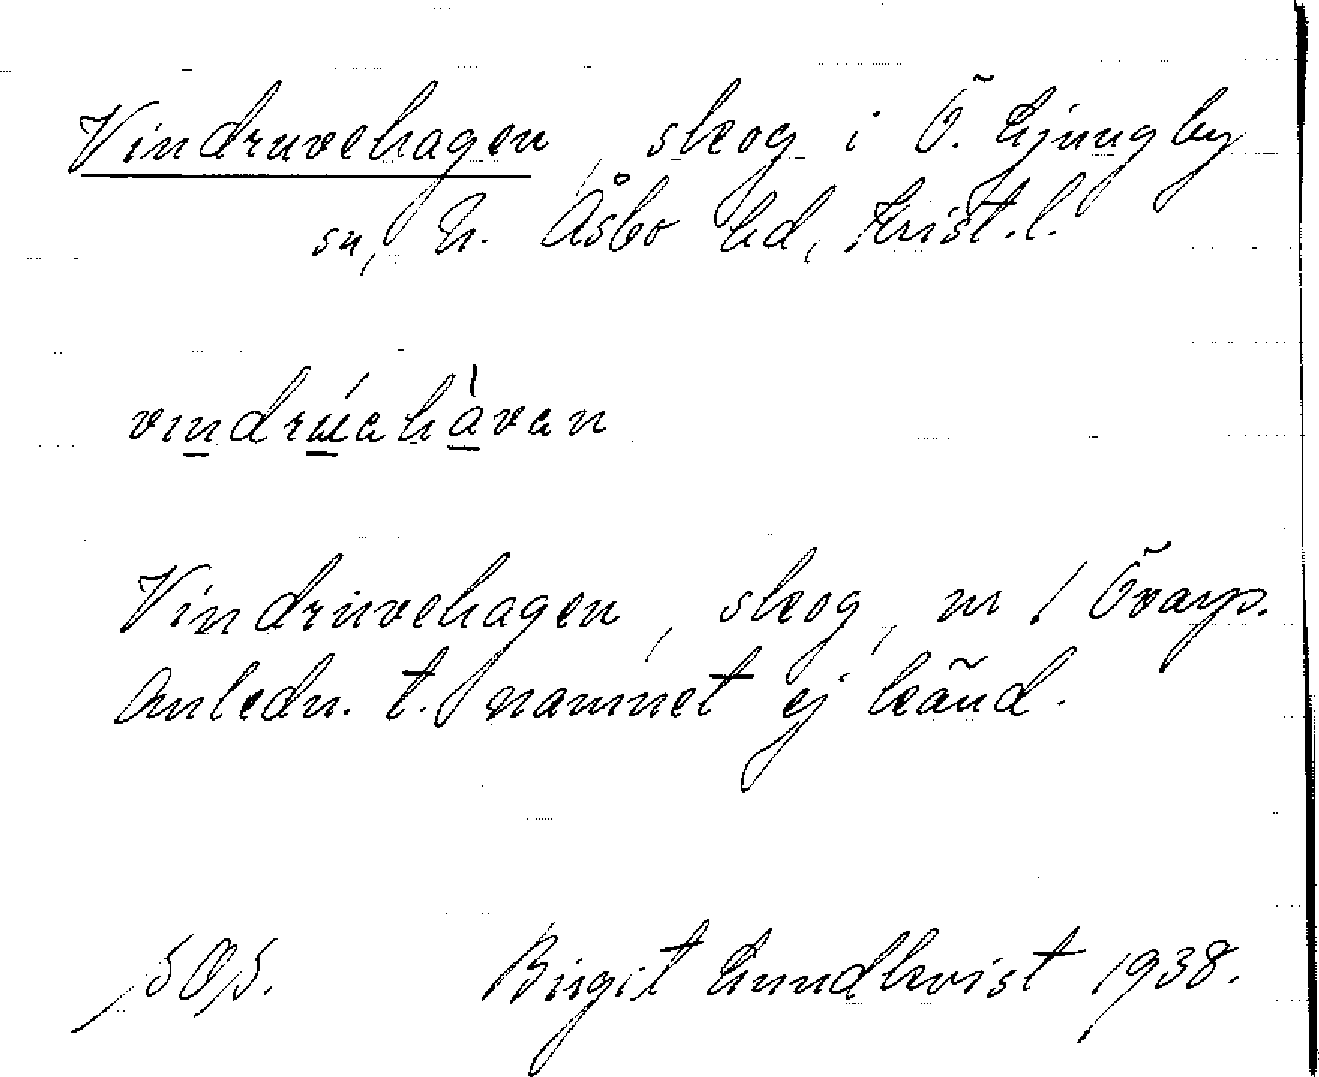 Vindruvehagen, skog i Ö. Ljungby
sn, N. Åsbo hd, Krist. l.
vındrúahàvan
Vindruvehagen, skog, nr 1 Övarp.
Anledn. t. namnet ej känd.
Birgit Lundkvist 1938.